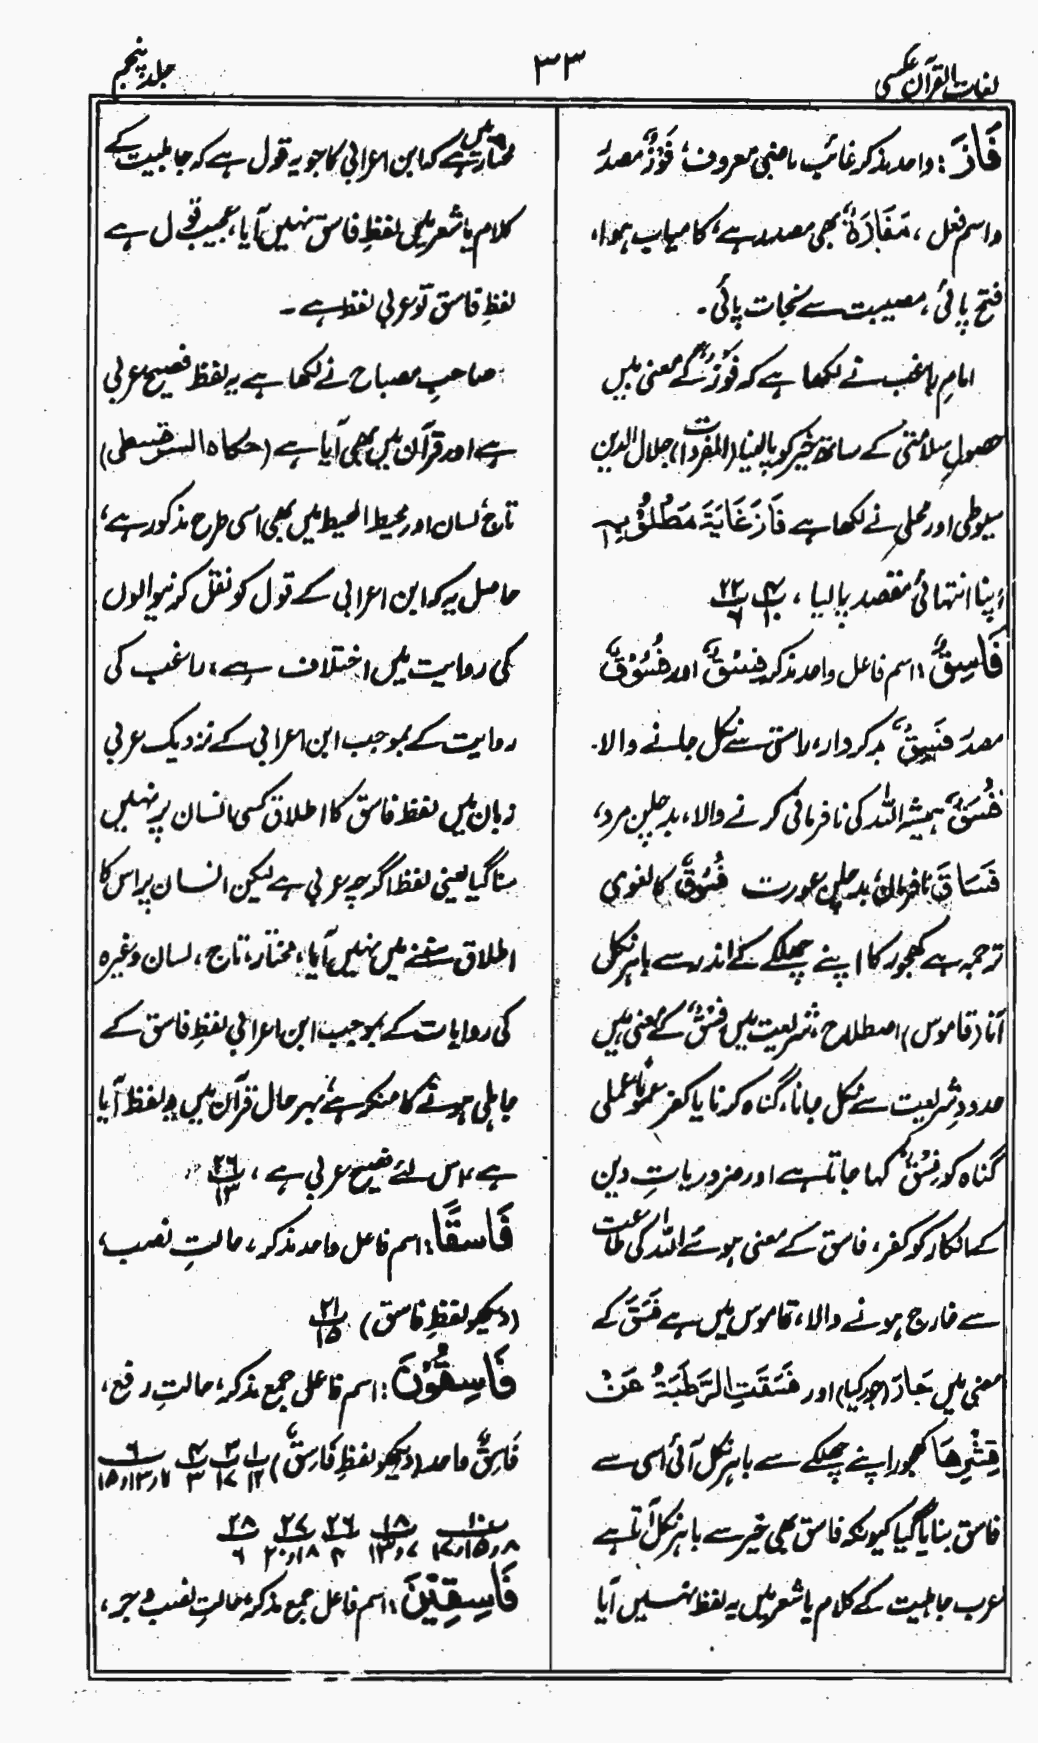 لغات القرآن عکسی
۳۳
جلد پنجم
فَازَ: واحد مذکر غائب ماضی معروف، فَوْزٌ مصدر
واسم فعل، مَفَازَةٌ بھی مصدر ہے، کامیاب ہوا،
فتح پائی، مصیبت سے نجات پائی۔
امام راغب نے لکھا ہے کہ فَوْزٌ کے معنی ہیں
حصولِ سلامتی کے ساتھ خیر کو پا لینا (المفردات) جلال الدین
سیوطی اور محلی نے لکھا ہے فَازَ غَایَةَ مَطْلُوْبِہٖ
اپنا انتہائی مقصد پا لیا، ۴/۱۰ ۲۲/۶
فَاسِقٌ: اسم فاعل واحد مذکر فِسْقٌ اور فُسُوْقٌ
مصدر فَسِیْقٌ بدکردار، راستی سے نکل جانے والا۔
فُسَقٌ ہمیشہ اللہ کی نافرمانی کرنے والا، بدچلن مرد،
فَسَاقِ نافرمان، بدچلن عورت فُسُوْقٌ کا لغوی
ترجمہ ہے کھجور کا اپنے چھلکے کے اندر سے باہر نکل
آنا (قاموس) اصطلاح شریعت میں فِسْقٌ کے معنی ہیں
حدودِ شریعت سے نکل جانا، گناہ کرنا یا کفر عموماً عملی
گناہ کو فِسْقٌ کہا جاتا ہے اور ضروریاتِ دین
کے انکار کو کفر، فاسق کے معنی ہوئے اللہ کی اطاعت
سے خارج ہونے والا، قاموس میں ہے فَسَقَ کے
معنی ہیں جَارَ (جور کیا) اور فَسَقَتِ الرَّطَبَةُ عَنْ
قِشْرِھَا کھجور اپنے چھلکے سے باہر نکل آئی اسی سے
فاسق بنایا گیا کیونکہ فاسق بھی خیر سے باہر نکل آتا ہے
عرب جاہلیت کے کلام یا شعر میں یہ لفظ نہیں آیا
مختار میں ہے کہ ابن اعرابی کا جو یہ قول ہے کہ جاہلیت کے
کلام یا شعر میں لفظِ فاسق نہیں آیا، عجیب قول ہے
لفظِ فاسق تو عربی لفظ ہے۔
صاحبِ مصباح نے لکھا ہے یہ لفظ فصیح عربی
ہے اور قرآن میں بھی آیا ہے (حکاہ السرقسطی)
تاج، لسان اور محیط المحیط میں بھی اسی طرح مذکور ہے،
حاصل یہ کہ ابن اعرابی کے قول کو نقل کرنیوالوں
کی روایت میں اختلاف ہے، راغب کی
روایت کے بموجب ابن اعرابی کے نزدیک عربی
زبان میں لفظ فاسق کا اطلاق کسی انسان پر نہیں
سنا گیا یعنی لفظ اگرچہ عربی ہے لیکن انسان پر اس کا
اطلاق سننے میں نہیں آیا، مختار، تاج، لسان وغیرہ
کی روایات کے بموجب ابن اعرابی لفظِ فاسق کے
جاہلی ہونے کا منکر ہے، بہر حال قرآن میں یہ لفظ آیا
ہے، اس لئے فصیح عربی ہے، ۲۶/۱۳
فَاسِقًا: اسم فاعل واحد مذکر، حالتِ نصب،
(دیکھو لفظِ فاسق) ۲۱/۱۵
فَاسِقُوْنَ: اسم فاعل جمع مذکر، حالتِ رفع،
فَاسِقٌ واحد (دیکھو لفظِ فَاسِقٌ) ۱/۱۲ ۳/۱۷ ۴/۳ ۶/۱۵،۱۳،۷
۱۰/۸،۱۵،۱۷ ۱۸/۷،۱۳ ۲۶/۴ ۲۷/۱۸،۲۰ ۲۸/۶
فَاسِقِیْنَ: اسم فاعل جمع مذکر، حالتِ نصب و جر،